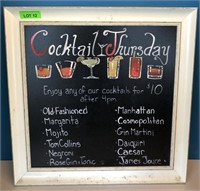 LOT 12
Cocktail Thursday
Enjoy any of our cocktails for $10
after 4pm
Old Fashioned
Margarita
Mojito
Tom Collins
Negroni
Rose Gin & Tonic
Manhattan
Cosmopolitan
Gin Martini
Daiquiri
Caesar
James Journ